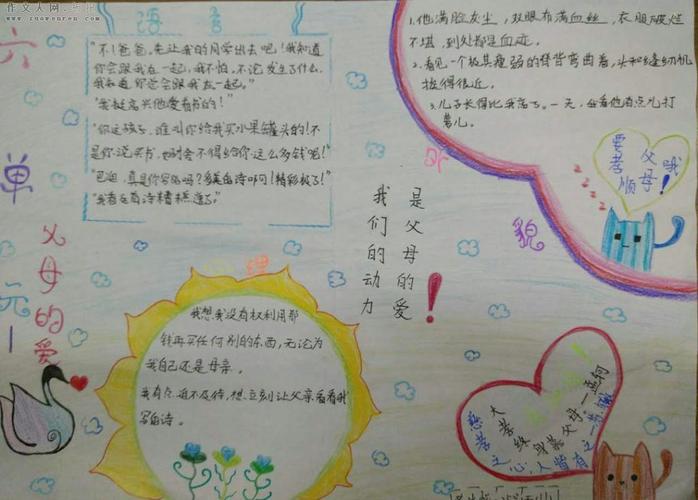 作文人网
www.zuowenren.com
六单元
父母的爱
语言
"不!爸爸,先让我的同学出去吧!我知道
你会跟我在一起,我不怕。不论发生了什么,
我知道你总会跟我在一起。"
"我挺高兴他爱看书的!"
"你这孩子,谁叫你给我买水果罐头的!不
是你说买书,
"巴迪,真是你写的吗?多美的诗啊!精彩极了!"
"我看这首诗糟糕透了"
1.他满脸灰尘,双眼布满血丝,衣服破烂
不堪,到处都是血迹。
2.看见一个极其瘦弱的脊背弯曲着,头和缝纫机
挨得很近。
3.儿子长得比我高了。一天,
要孝顺父母哦!
貌
是父母的爱
我们的动力!
心理
我想我没有权利用那
钱再买任何别的东西,无论为
我自己还是母亲。
我有点迫不及待,想立刻让父亲看看我
写的诗。
大孝终身慕父母
慈孝之心,人皆有之